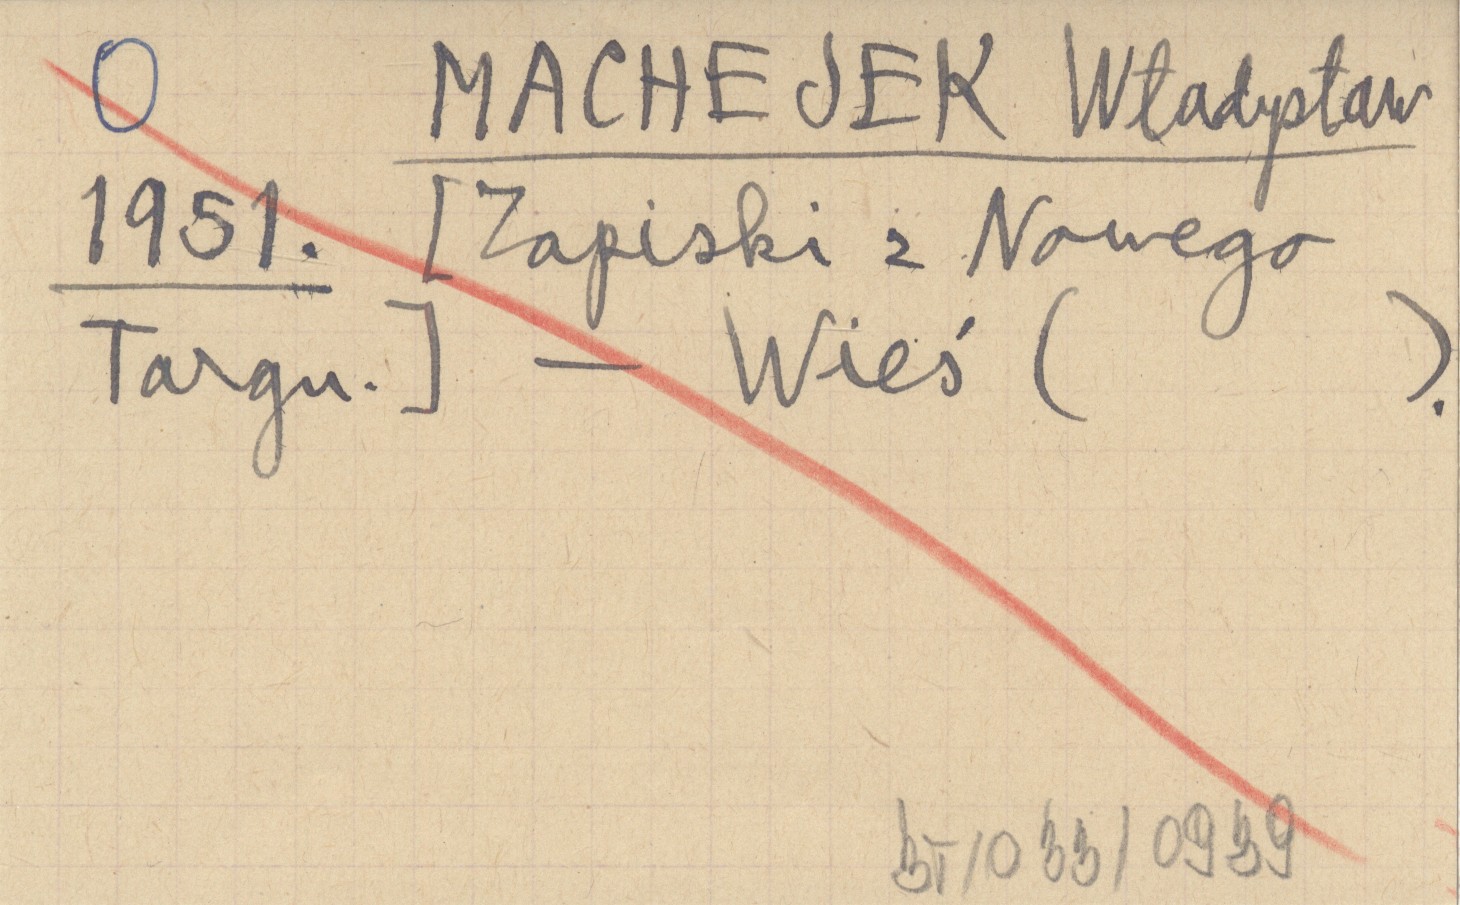 O MACHEJEK Władysław
1951. [Zapiski z Nowego
Targu.] — Wieś ( ).
3T/033/0939